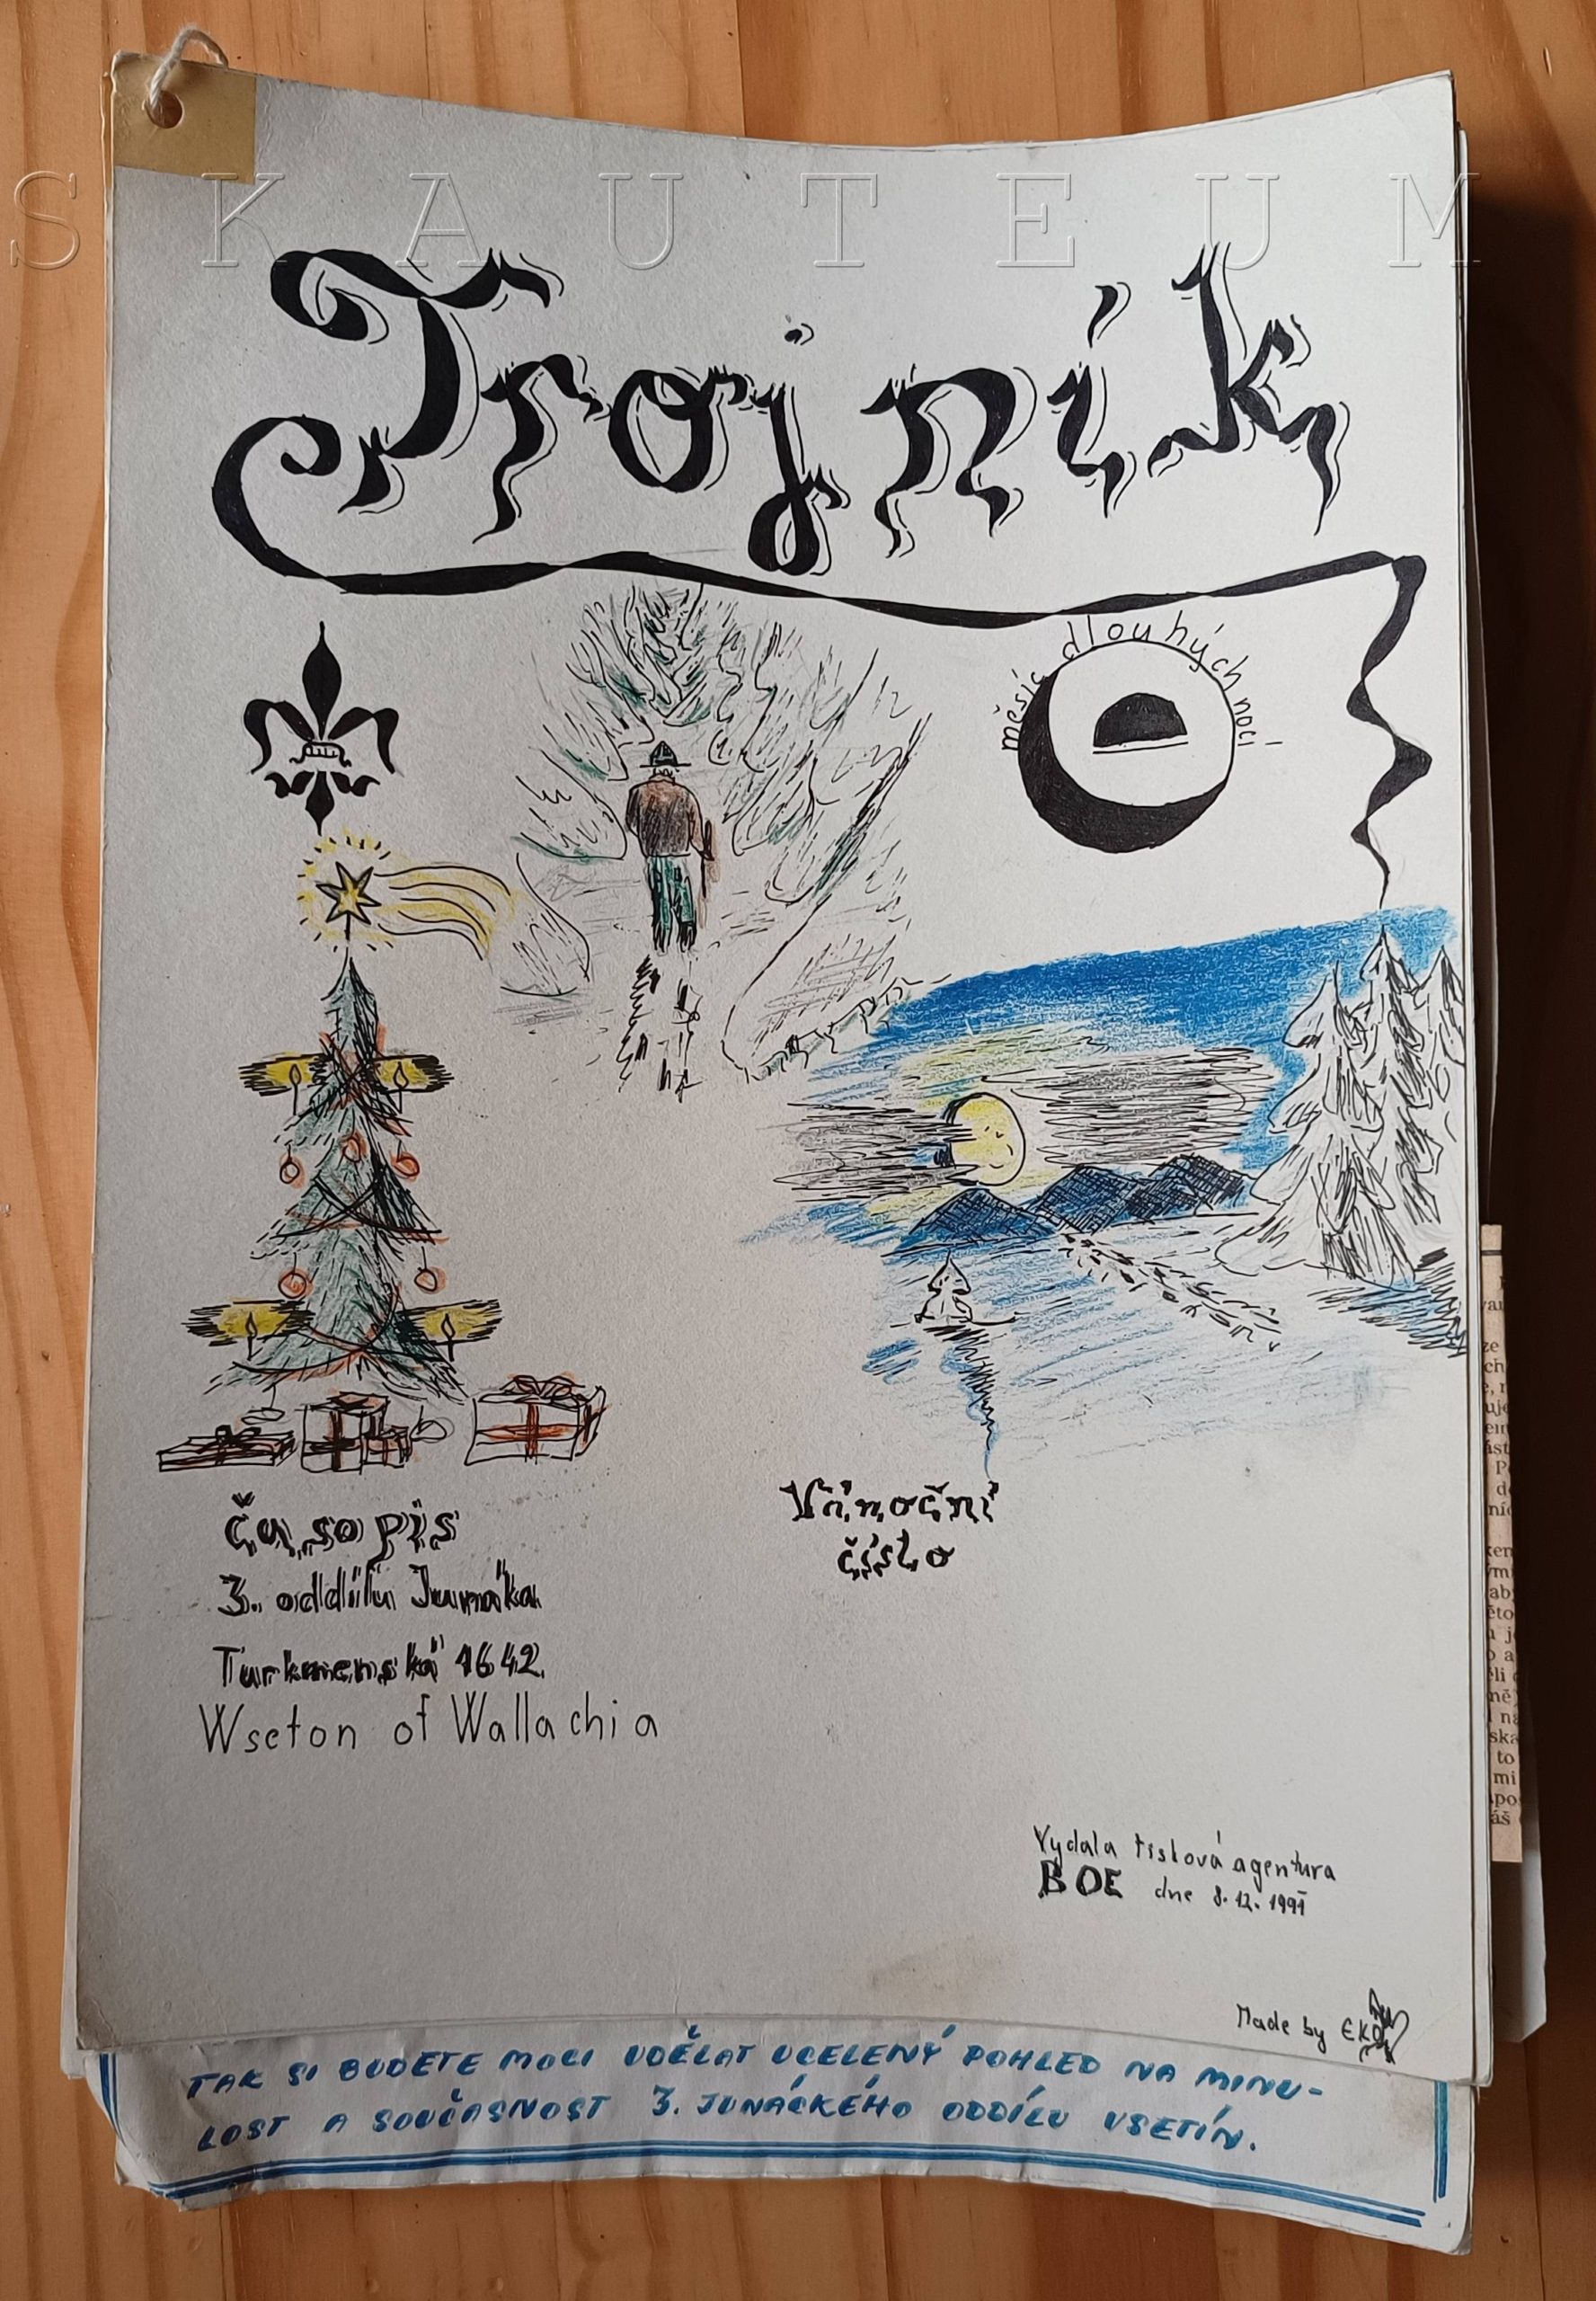 SKAUTEUM
Trojník
měsíc dlouhých nocí
časopis
3. oddílu Junáka
Turkmenská 1642
Wseton of Wallachia
Vánoční
číslo
Vydala tisková agentura
BOE dne 8.12.1991
Made by EKO
TAK SI BUDETE MOCI UDĚLAT UCELENÝ POHLED NA MINU-
LOST A SOUČASNOST 3. JUNÁCKÉHO ODDÍLU VSETÍN.